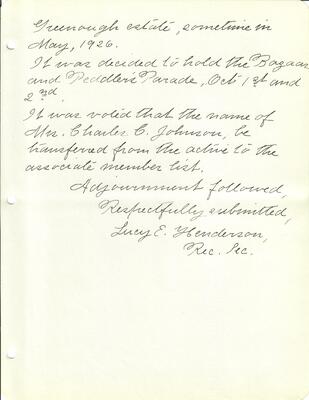 Greenough estate, sometime in
May, 1926.
It was decided to hold the Bazaar
and Peddler's Parade, Oct 1st and
2nd.
It was voted that the name of
Mrs. Charles C. Johnson, be
transfered from the active to the
associate member list.
Adjournment followed,
Respectfully submitted,
Lucy E. Henderson,
Rec. Sec.